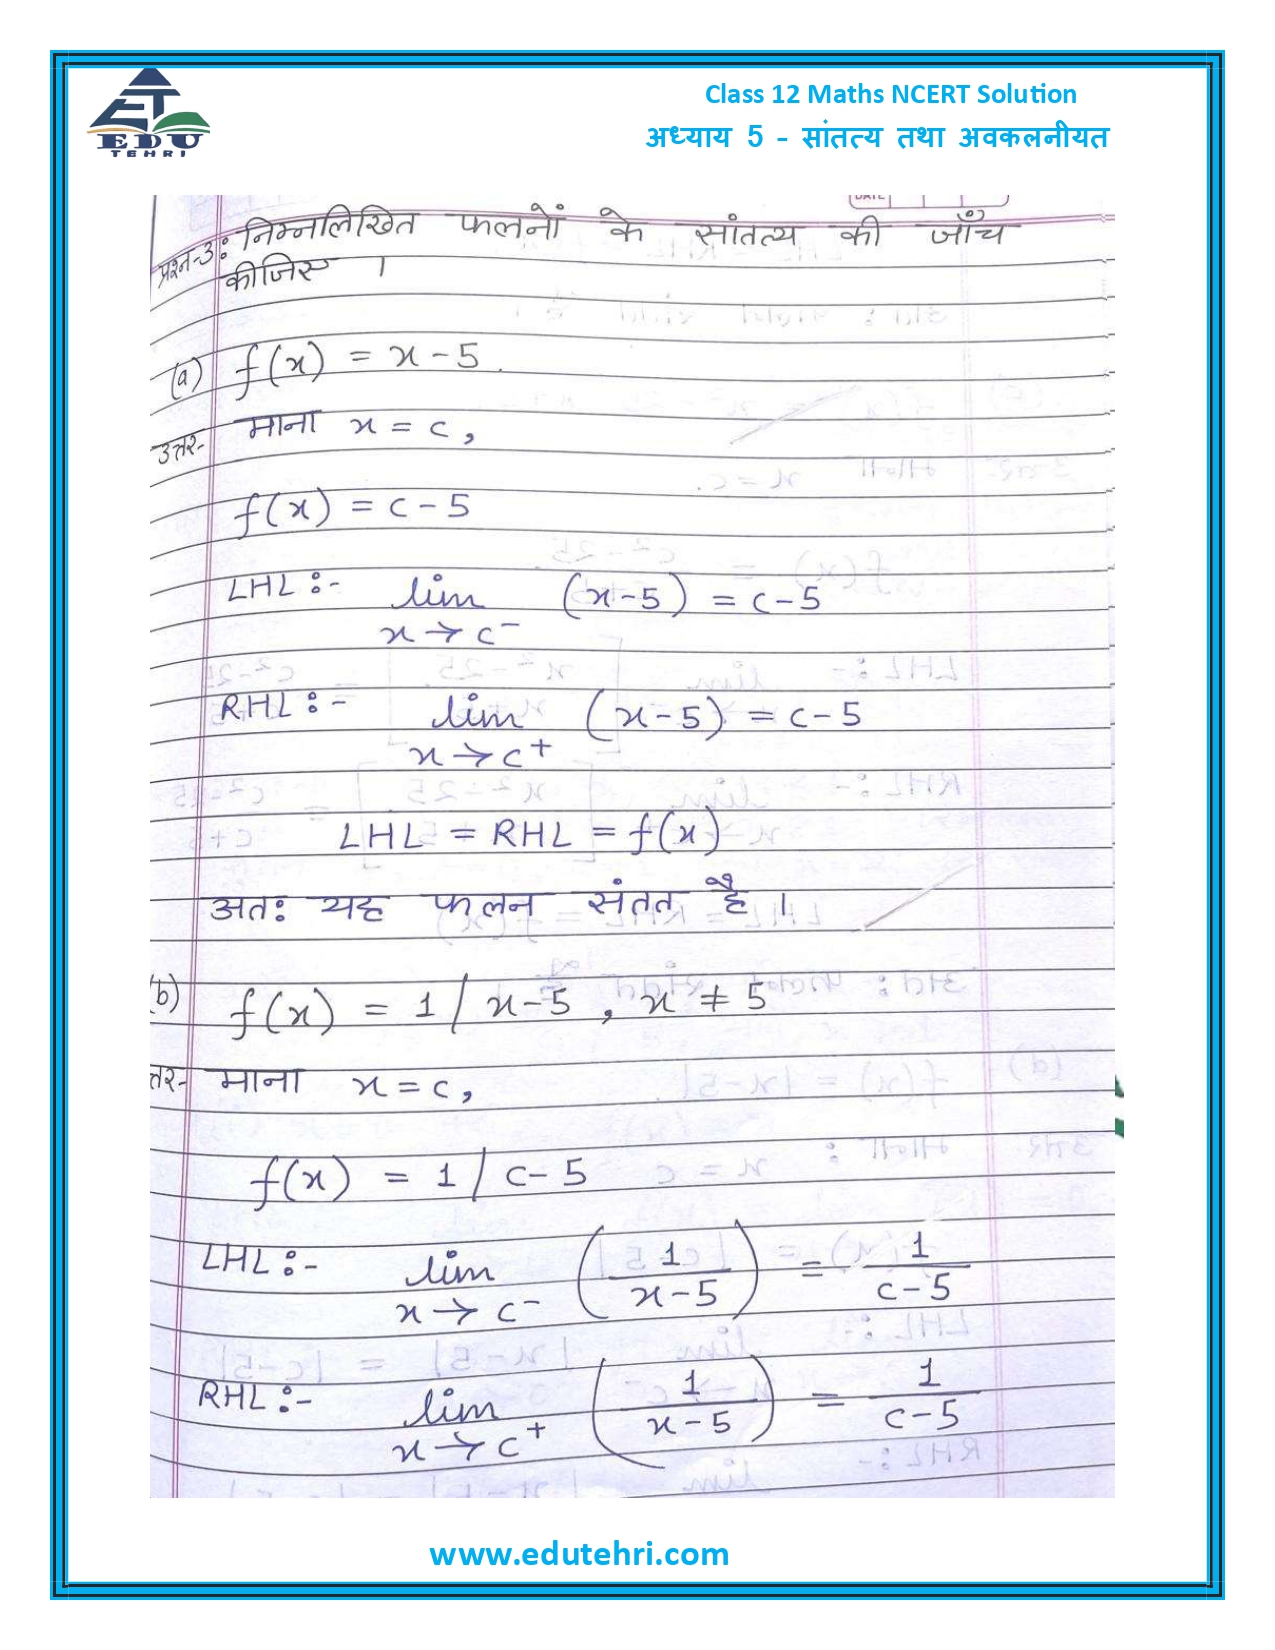 EDU
TEHRI
Class 12 Maths NCERT Solution
अध्याय 5 - सांतत्य तथा अवकलनीयत
DATE
प्रश्न-3: निम्नलिखित फलनों के सांतत्य की जाँच
कीजिए ।
(a) f(x) = x - 5.
उत्तर- माना x = c,
f(x) = c - 5
LHL :- lim (x-5) = c-5
x → c⁻
RHL :- lim (x-5) = c-5
x → c⁺
LHL = RHL = f(x)
अतः यह फलन संतत है ।
(b) f(x) = 1 / x-5 , x ≠ 5
त्तर- माना x = c,
f(x) = 1 / c-5
LHL :- lim (1/(x-5)) = 1/(c-5)
x → c⁻
RHL :- lim (1/(x-5)) = 1/(c-5)
x → c⁺
www.edutehri.com